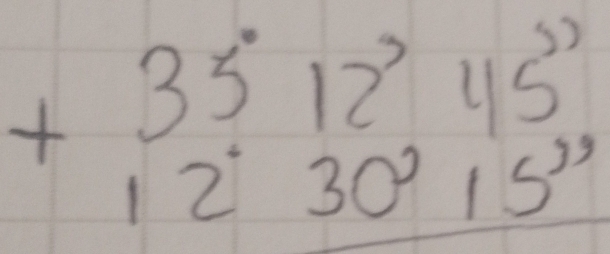 + 35° 12' 45''
12° 30' 15''